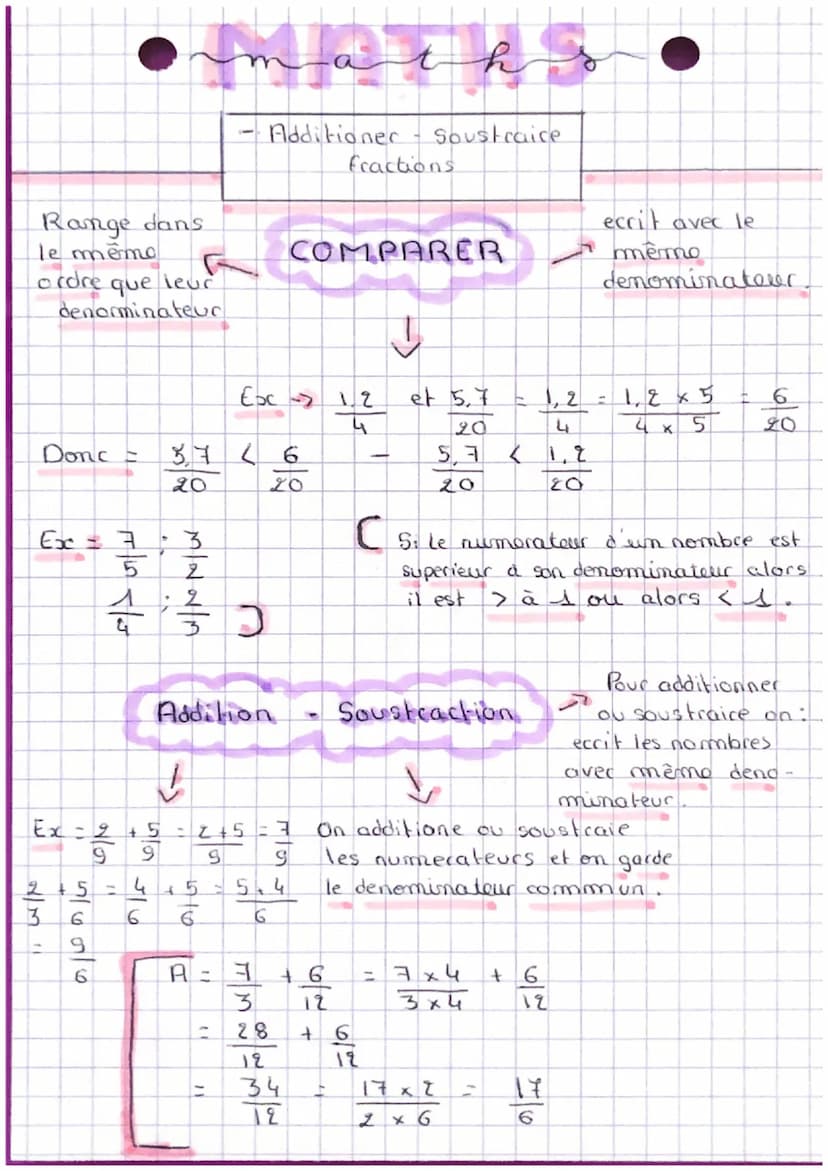 MATHS
maths
- Additioner - Soustraire
fractions
Range dans
le même
ordre que leur
denorminateur
COMPARER
ecrit avec le
même
denominateur.
Ex → 1,2/4 et 5,7/20 = 1,2/4 = 1,2 x 5/4 x 5 = 6/20
Donc = 5,7/20 < 6/20 - 5,7/20 < 1,2/20
Ex = 7/5 ; 3/2
1/4 ; 2/3
Si le numerateur d'un nombre est
superieur à son denominateur alors
il est > à 1 ou alors < 1.
Addition - Soustraction
Pour additionner
ou soustraire on :
ecrit les nombres
avec même deno-
minateur.
Ex = 2/9 + 5/9 = 2+5/9 = 7/9
2/3 + 5/6 = 4/6 + 5/6 = 5+4/6
= 9/6
On additione ou soustraie
les numerateurs et on garde
le denominateur commun.
A = 7/3 + 6/12 = 7 x 4/3 x 4 + 6/12
= 28/12 + 6/12
= 34/12 = 17 x 2/2 x 6 = 17/6